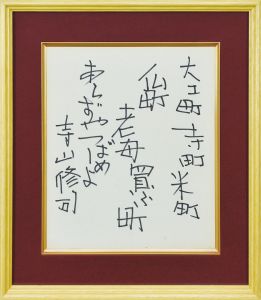 大工町寺町米町
仏町
老母買ふ町
あらずやつばめよ
寺山修司